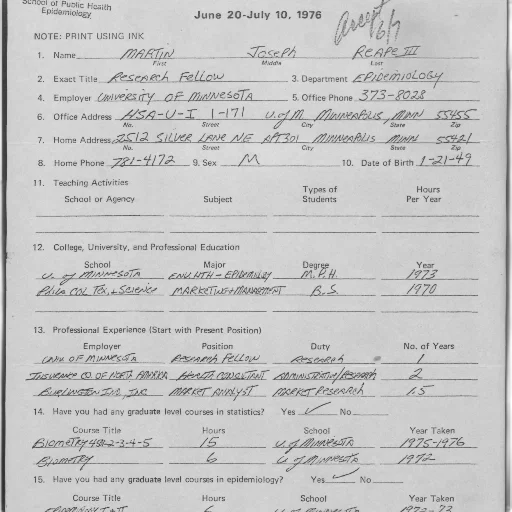 School of Public Health
Epidemiology
June 20-July 10, 1976
accept 6/7
NOTE: PRINT USING INK
1. Name MARTIN Joseph REAPE III
First Middle Last
2. Exact Title Research Fellow 3. Department EPIDEMIOLOGY
4. Employer UNIVERSITY OF MINNESOTA 5. Office Phone 373-8028
6. Office Address HSA-U-I 1-171 U.of M. MINNEAPOLIS, MINN 55455
No. Street City State Zip
7. Home Address 2512 SILVER LANE NE APT 301 MINNEAPOLIS MINN 55421
No. Street City State Zip
8. Home Phone 781-4172 9. Sex M 10. Date of Birth 1-21-49
11. Teaching Activities
School or Agency Subject Types of Students Hours Per Year
12. College, University, and Professional Education
School Major Degree Year
U. of MINNESOTA ENV.HLTH-EPIDEMIOLOGY M.P.H. 1973
Phila COL Tex.+Science MARKETING+MANAGEMENT B.S. 1970
13. Professional Experience (Start with Present Position)
Employer Position Duty No. of Years
UNIV. OF MINNESOTA RESEARCH FELLOW RESEARCH 1
INSURANCE CO. OF NORTH AMERICA HEALTH CONSULTANT ADMINISTRATIVE/RESEARCH 2
BURLINGTON IND, INC. MARKET ANALYST MARKET RESEARCH 1.5
14. Have you had any graduate level courses in statistics? Yes ✓ No
Course Title Hours School Year Taken
BIOMETRY 15 U. of MINNESOTA 1975-1976
BIOMETRY 6 U of MINNESOTA 1972
15. Have you had any graduate level courses in epidemiology? Yes ✓ No
Course Title Hours School Year Taken